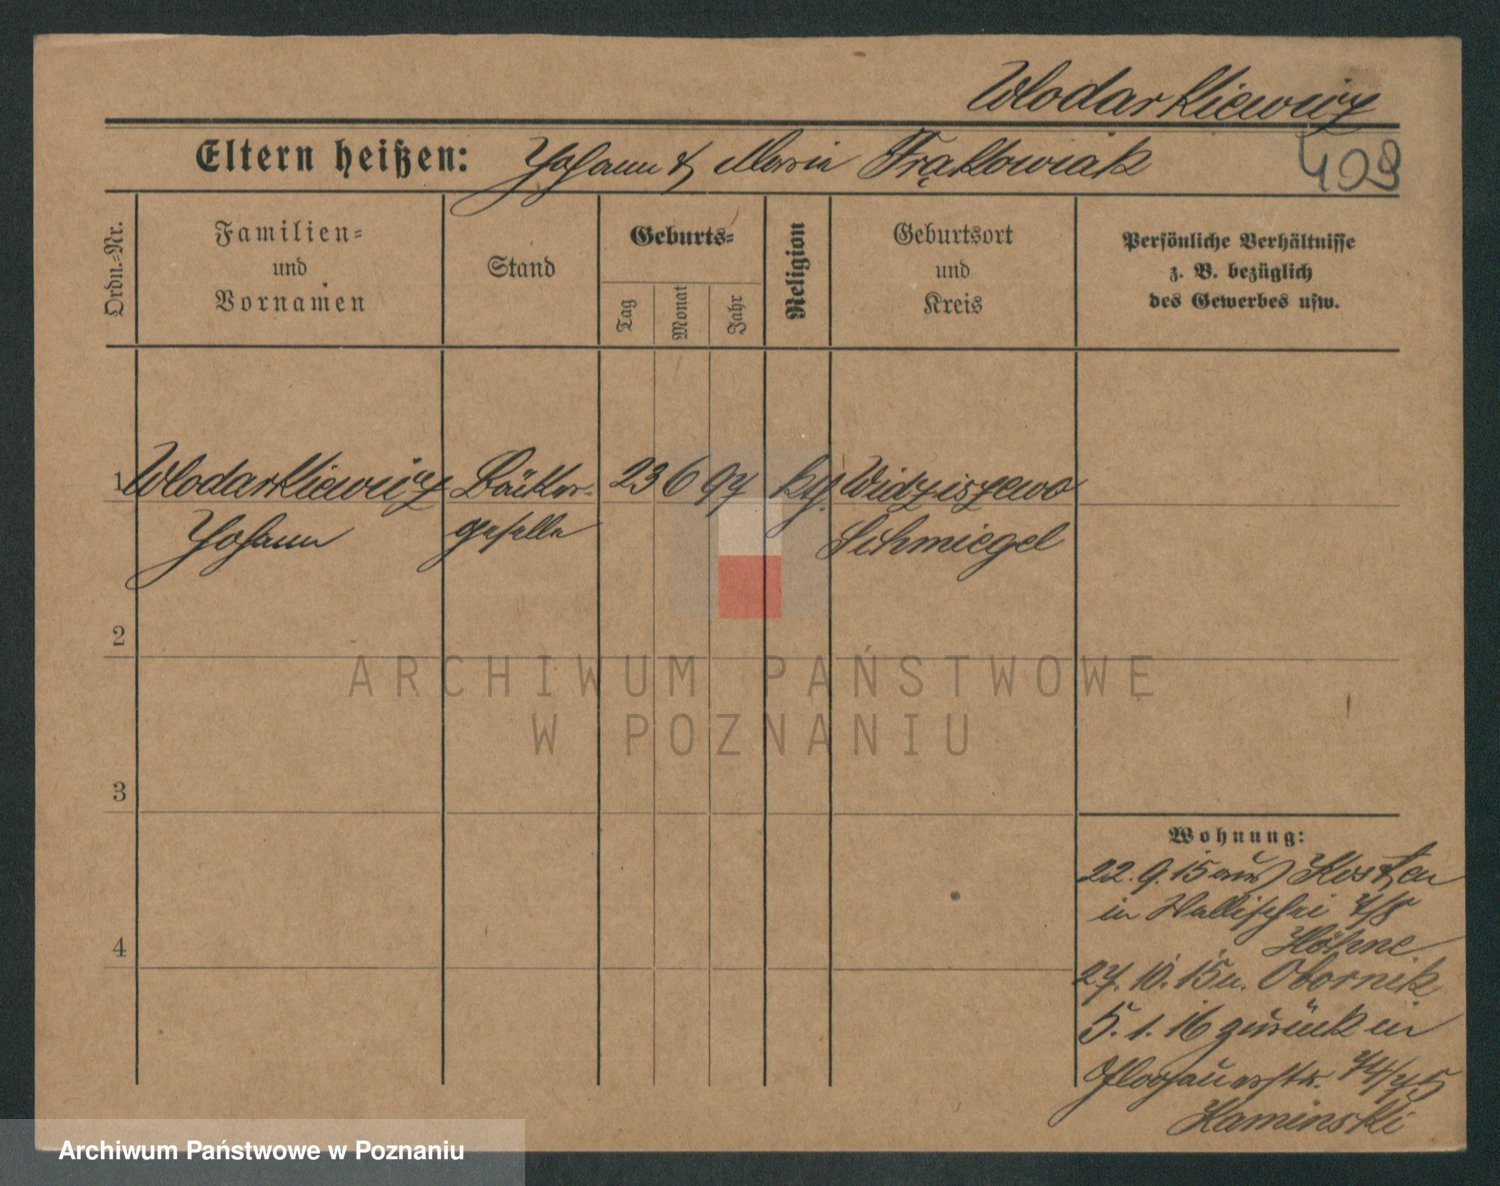 Wlodarkiewicz
Eltern heißen: Johann & Maria Frąkowiak
409
Ordn.-Nr.
Familien-
und
Vornamen
Stand
Geburts-
Tag
Monat
Jahr
Religion
Geburtsort
und
Kreis
Persönliche Verhältnisse
z. B. bezüglich
des Gewerbes usw.
1 Wlodarkiewicz Bäcker- 23 6 97 kth. Widziszewo
Johann geselle Schmiegel
2
3
4
Wohnung:
22. 9. 15 aus Kosten
in Wallischei 7/8
Höhne
27. 10. 15 n. Obornik
5. 1. 16 zurück in
Glogauerstr. 74/75
Kaminski
ARCHIWUM PAŃSTWOWE
W POZNANIU
Archiwum Państwowe w Poznaniu